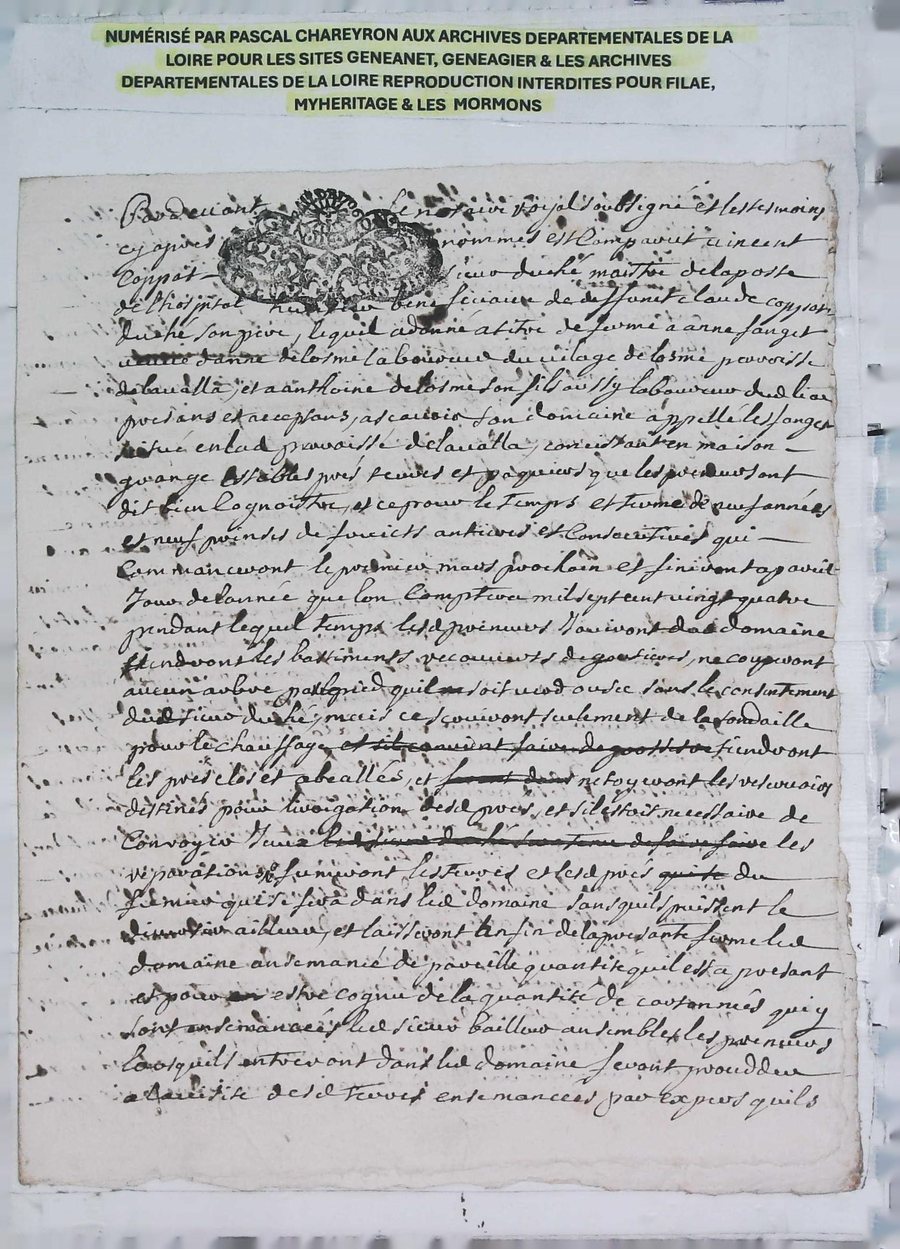 NUMÉRISÉ PAR PASCAL CHAREYRON AUX ARCHIVES DEPARTEMENTALES DE LA
LOIRE POUR LES SITES GENEANET, GENEAGIER & LES ARCHIVES
DEPARTEMENTALES DE LA LOIRE REPRODUCTION INTERDITES POUR FILAE,
MYHERITAGE & LES MORMONS
Pardevant le notaire royal soubsigné et les tesmoins
cy apres nommes est Comparut vincent
Coppat sieur duché maistre de la poste
de lhospital beneficiaire de deffunct claude coppat
duché son pere, lequel a donné a titre de ferme a anne fanget
delosme laboureur du vilage de losme parroisse
de lavalla, et a anthoine delosme son fils aussy laboureur dud lieu
presans et acceptans, ascavoir son domaine appellé les fanget
situé en lad parroisse de lavalla, consistant en maison
grange estables pres terres et paquiers que les preneurs ont
dit bien cognoistre, et ce pour le temps et terme de neuf années
et neuf prinses de fruicts antieres et Consecutives qui
Commanceront le premier mars prochain et finiront a pareil
Jour de lannée que lon Comptera mil sept cent vingt quatre
pendant lequel temps lesd preneurs Jouiront dud domaine
tiendront les bastiments recouverts de goutieres, ne couperont
aucun arbre par pied quil soit verd ou sec sans le consentement
dud sieur duché, mais ce serviront seulement de la fondaille
pour le chauffage et sil convient faire de tiendront
les prés clos et abeallés, et netoyeront les reservoirs
destinés pour lirrigation desd prés, et sil estoit necessaire de
Convoyer led sieur duché sera tenu de faire faire les
reparations, fumeront les terres et lesd prés du
fumier qui se fera dans led domaine sans quils puissent le
divertir ailleurs, et laisseront a la fin de la presante ferme led
domaine ansemancé de pareille quantité quil est a presant
et pour estre cognu de la quantité de cartonnés qui y
sont ansemancés led sieur bailleur ansemble les preneurs
lorsquils entreront dans led domaine feront proceder
a la visite desd terres ensemancees par expers quils